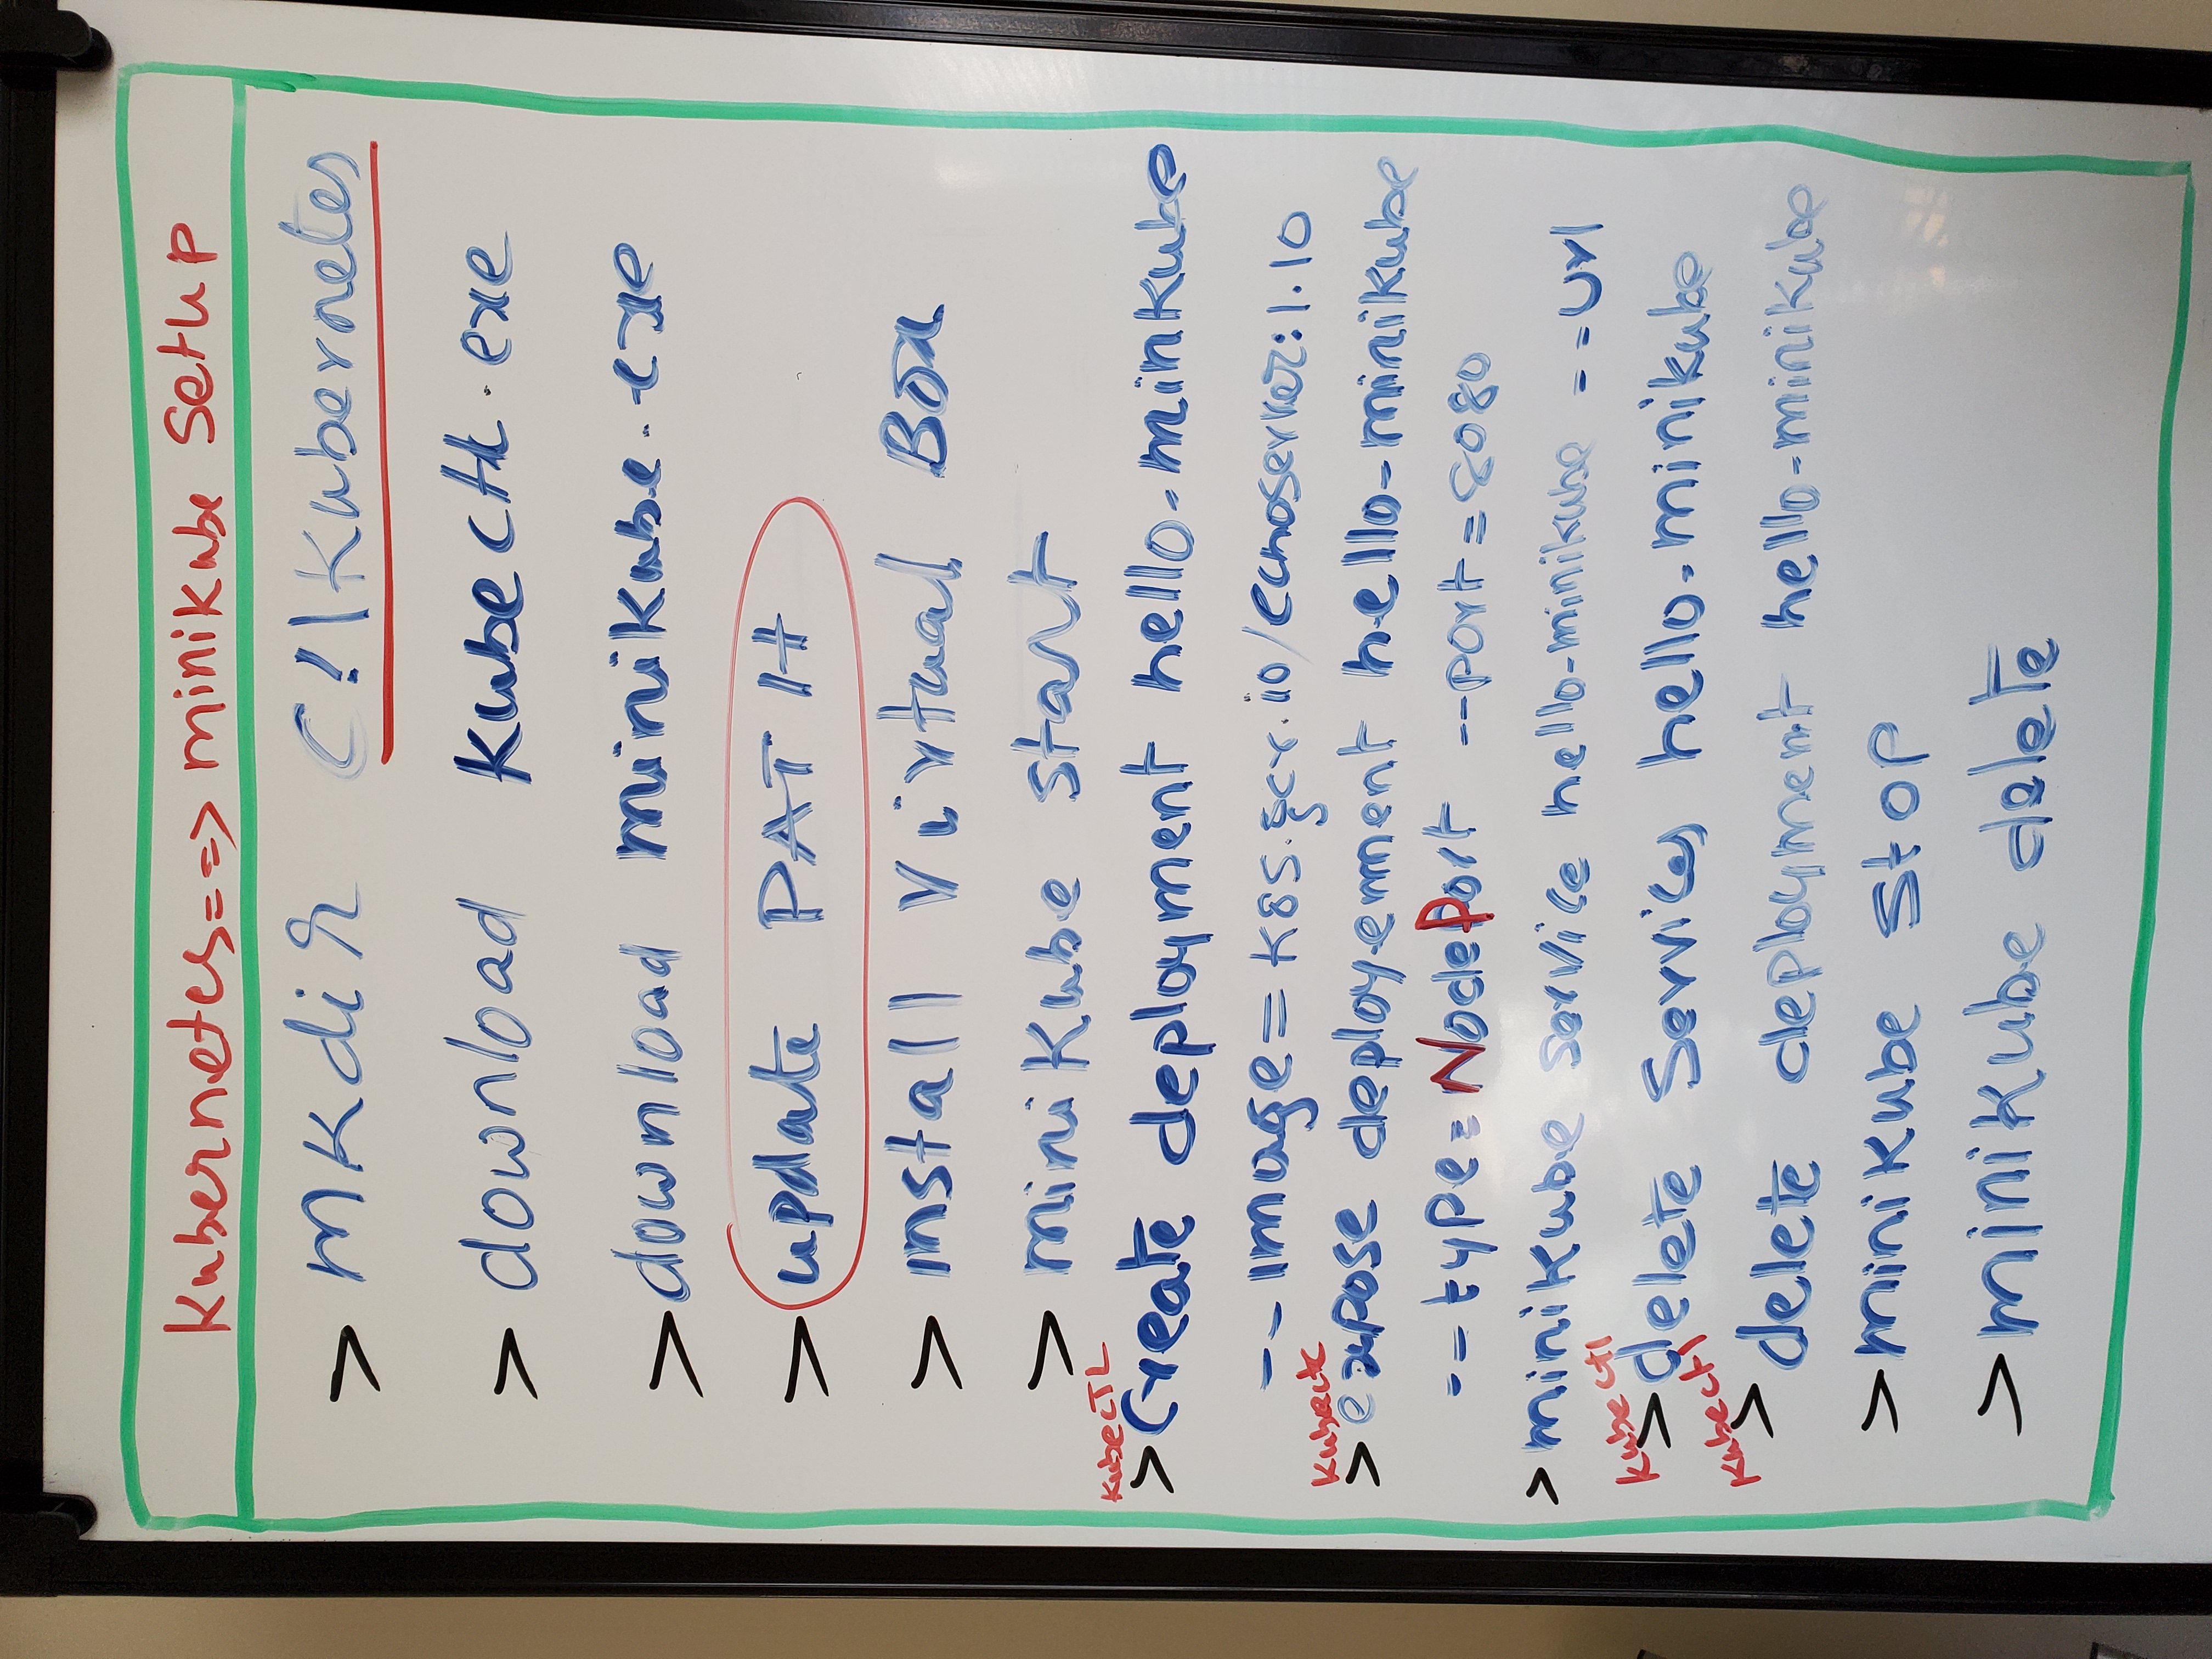 Kubernetes==> minikube setup
> mkdir C:\Kubernetes
> download Kubectl.exe
> download minikube.exe
> update PATH
> install Virtual Box
> minikube start
kubecTL
> Create deployment hello-minkube
--image=k8s.gcr.io/echoserver:1.10
Kubectl
> expose deployement hello-minikube
--type=NodePort --port=8080
> minikube service hello-minikube --url
kubectl
> delete Services hello-minikube
Kubectl
> delete deployment hello-minikube
> minikube stop
> minikube delete